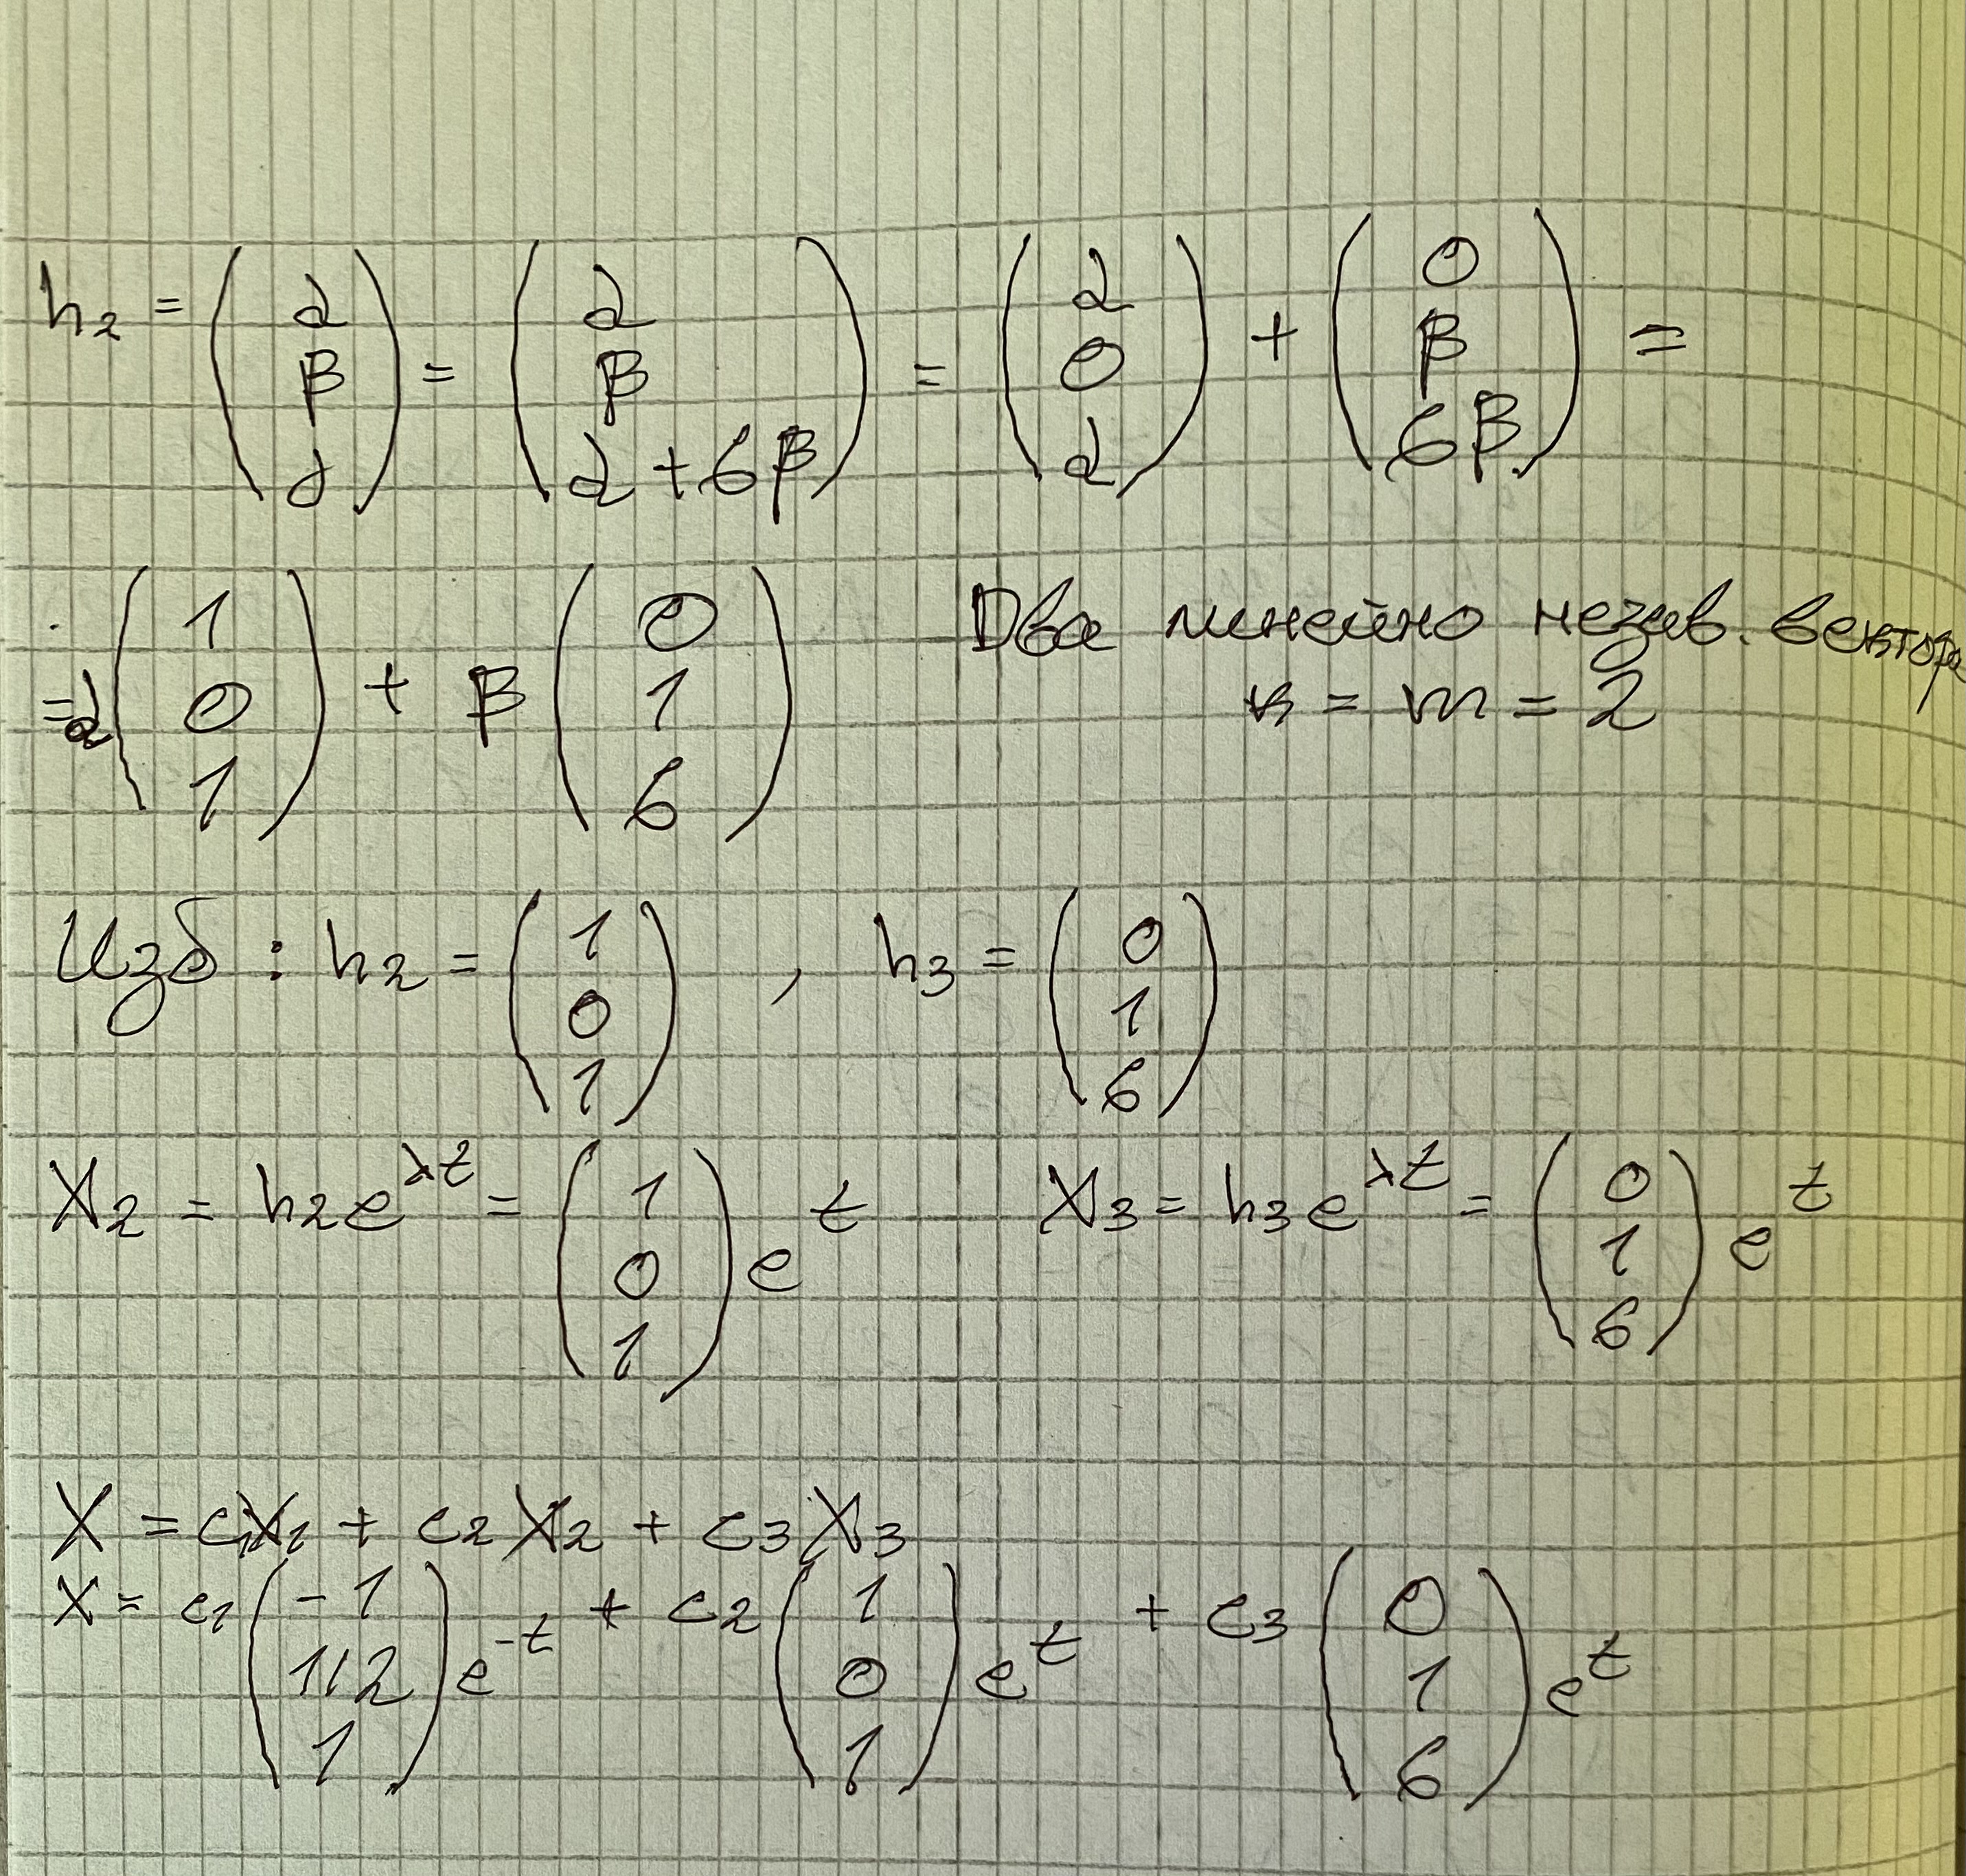 h₂ = (α β γ) = (α β α+6β) = (α 0 α) + (0 β 6β) =
= α (1 0 1) + β (0 1 6) Два линейно незав. вектора
n = m = 2
Изб : h₂ = (1 0 1) , h₃ = (0 1 6)
X₂ = h₂e^λt = (1 0 1) e^t X₃ = h₃e^λt = (0 1 6) e^t
X = c₁X₁ + c₂X₂ + c₃X₃
X = c₁ (-1 1/2 1) e^-t + c₂ (1 0 1) e^t + c₃ (0 1 6) e^t